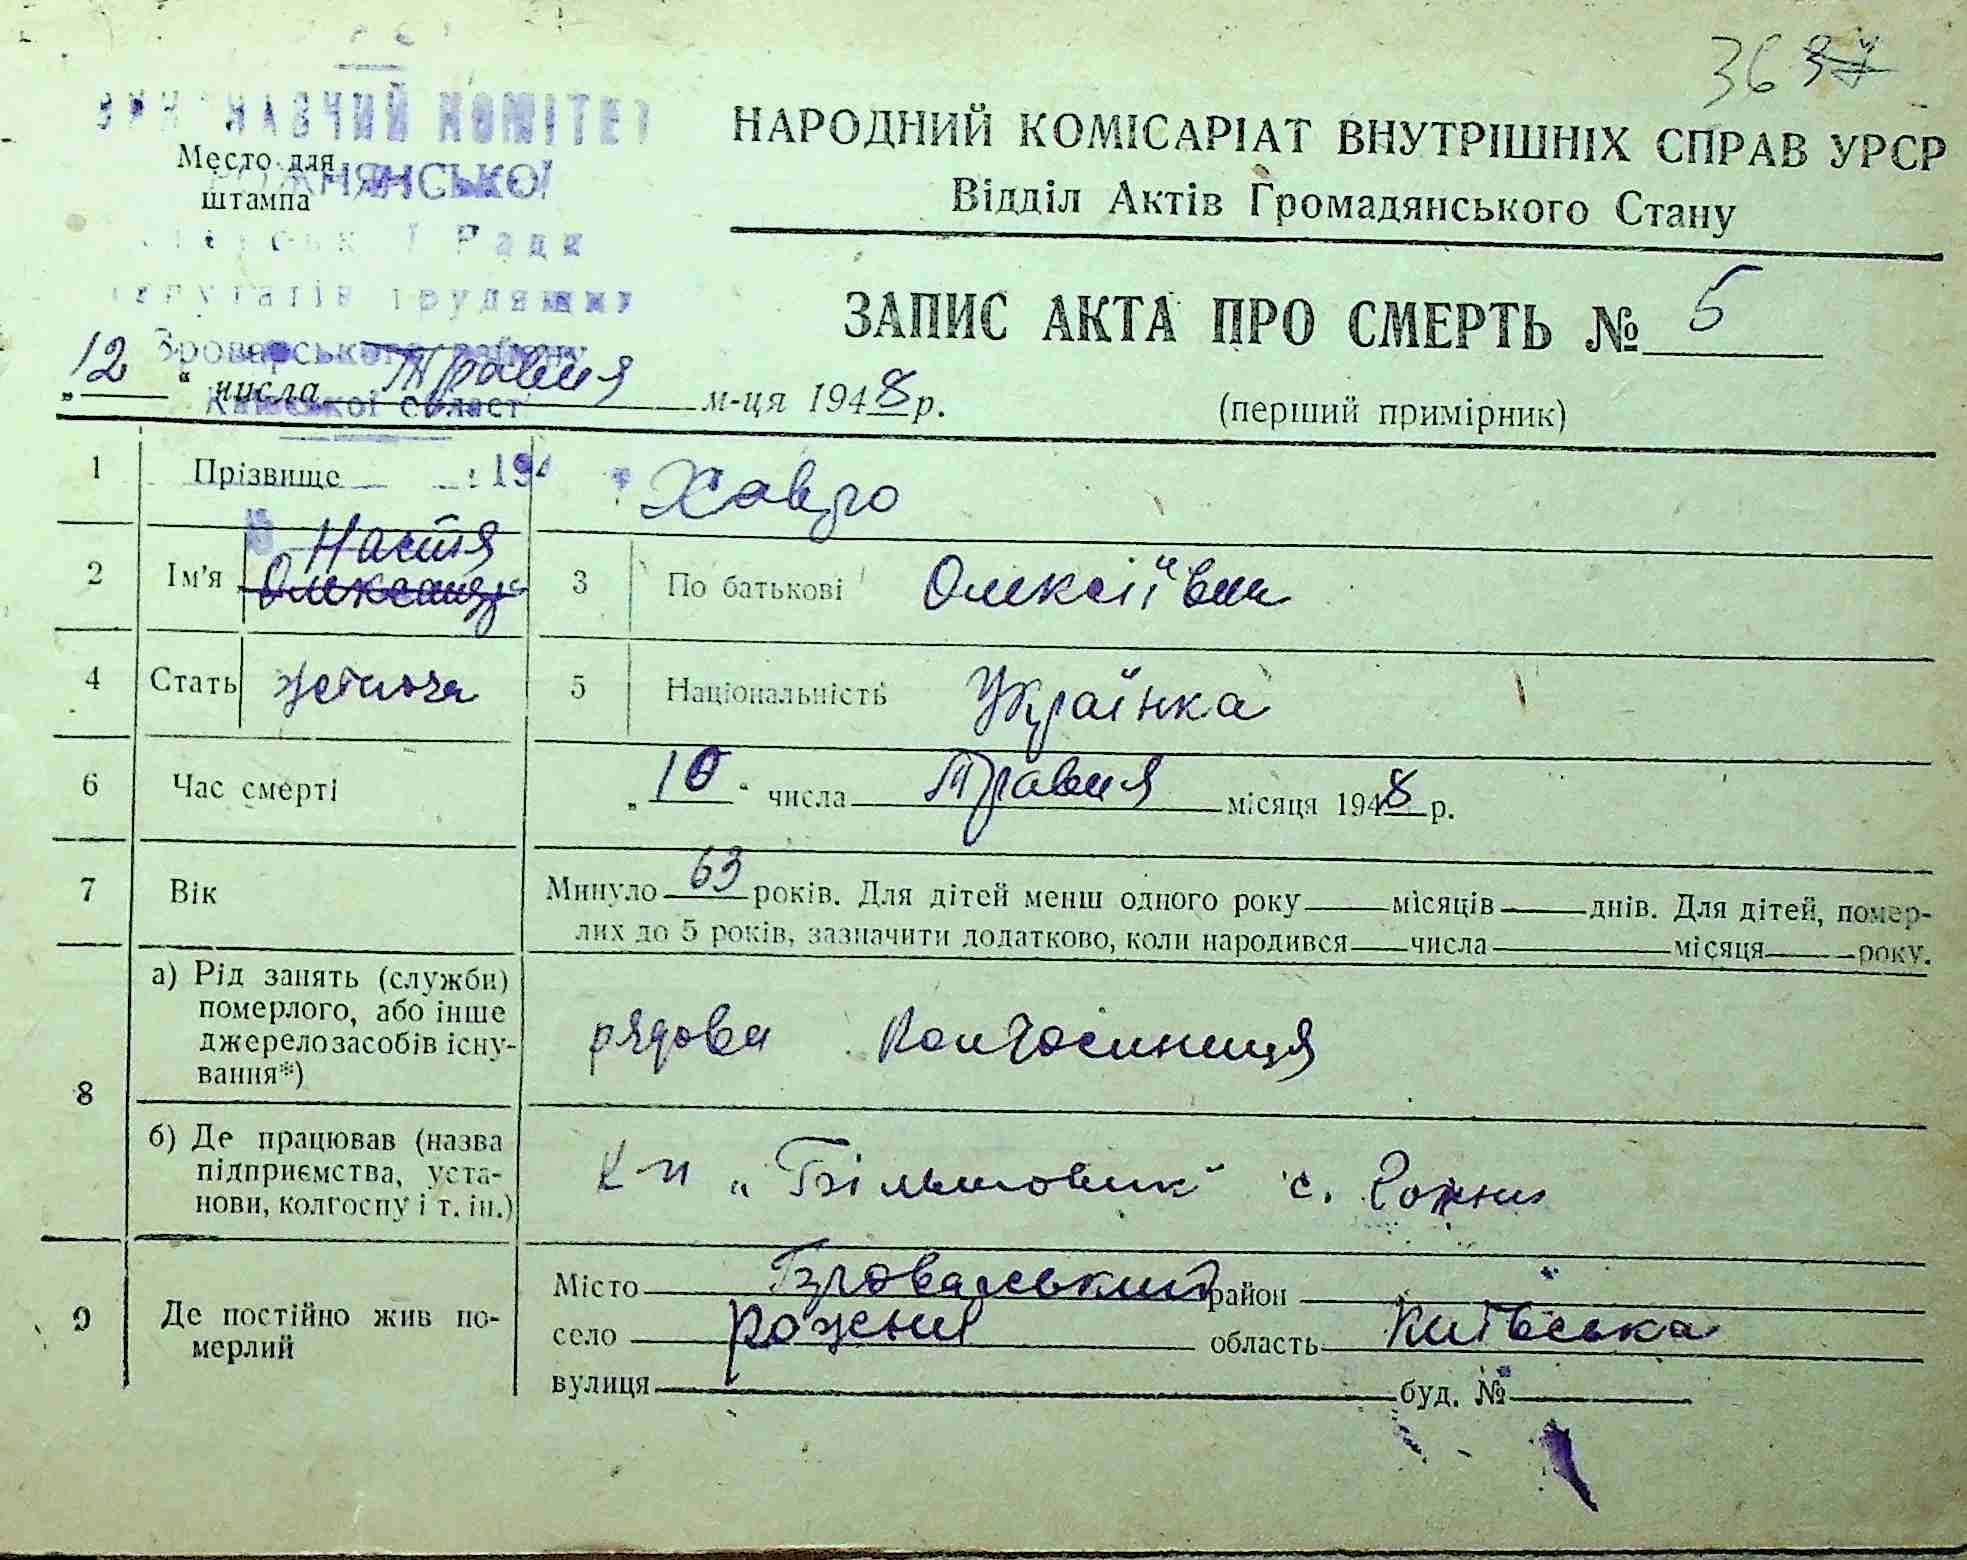 36
ВИКОНАВЧИЙ КОМІТЕТ
Место для штампа
РОЖНЯНСЬКОЇ
Сільської Ради
депутатів трудящих
Броварського району
Київської області
НАРОДНИЙ КОМІСАРІАТ ВНУТРІШНІХ СПРАВ УРСР
Відділ Актів Громадянського Стану
ЗАПИС АКТА ПРО СМЕРТЬ № 5
„12“ числа Травня м-ця 1948 р.
(перший примірник)
1 Прізвище Хавро
2 Ім'я Настя Олександр 3 По батькові Олексіївна
4 Стать жіноча 5 Національність Українка
6 Час смерті „10“ числа Травня місяця 1948 р.
7 Вік Минуло 63 років. Для дітей менш одного року місяців днів. Для дітей, помер-
лих до 5 років, зазначити додатково, коли народився числа місяця року.
8 а) Рід занять (служби)
померлого, або інше
джерело засобів існу-
вання*)
рядова колгоспниця
б) Де працював (назва
підприємства, уста-
нови, колгоспу і т. ін.)
к-п „Більшовик“ с. Рожни
9 Де постійно жив по-
мерлий
Місто Броварський район
село Рожни область Київська
вулиця буд. №